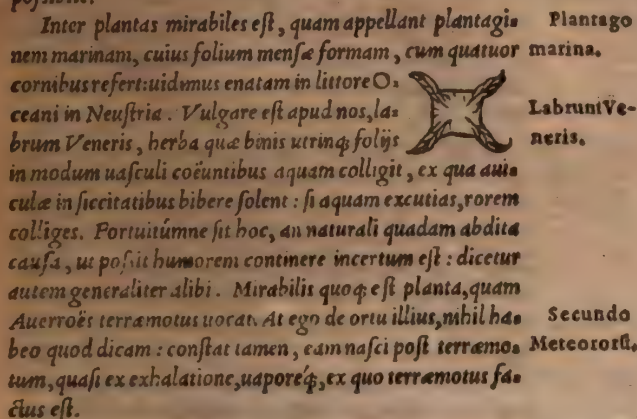 Inter plantas mirabiles eſt, quam appellant plantagi⸗ Plantago
nem marinam, cuius folium menſæ formam, cum quatuor marina.
cornibus refert: uidimus enatam in littore O⸗
ceani in Neuſtria. Vulgare eſt apud nos, la⸗ Labrum Ve⸗
brum Veneris, herba quæ binis utrinq; folijs neris.
in modum uaſculi coëuntibus aquam colligit, ex qua auiu
culæ in ſiccitatibus bibere ſolent: ſi aquam excutias, rorem
colliges. Fortuitúmne ſit hoc, an naturali quadam abdita
cauſa, ut poſsit humorem continere incertum eſt: dicetur
autem generaliter alibi. Mirabilis quoq; eſt planta, quam
Auerroës terræmotus uocat. At ego de ortu illius, nihil ha⸗ Secundo
beo quod dicam: conſtat tamen, eam naſci poſt terræmo⸗ Meteororũ.
tum, quaſi ex exhalatione, uaporeq́;, ex quo terræmotus fa⸗
ctus eſt.